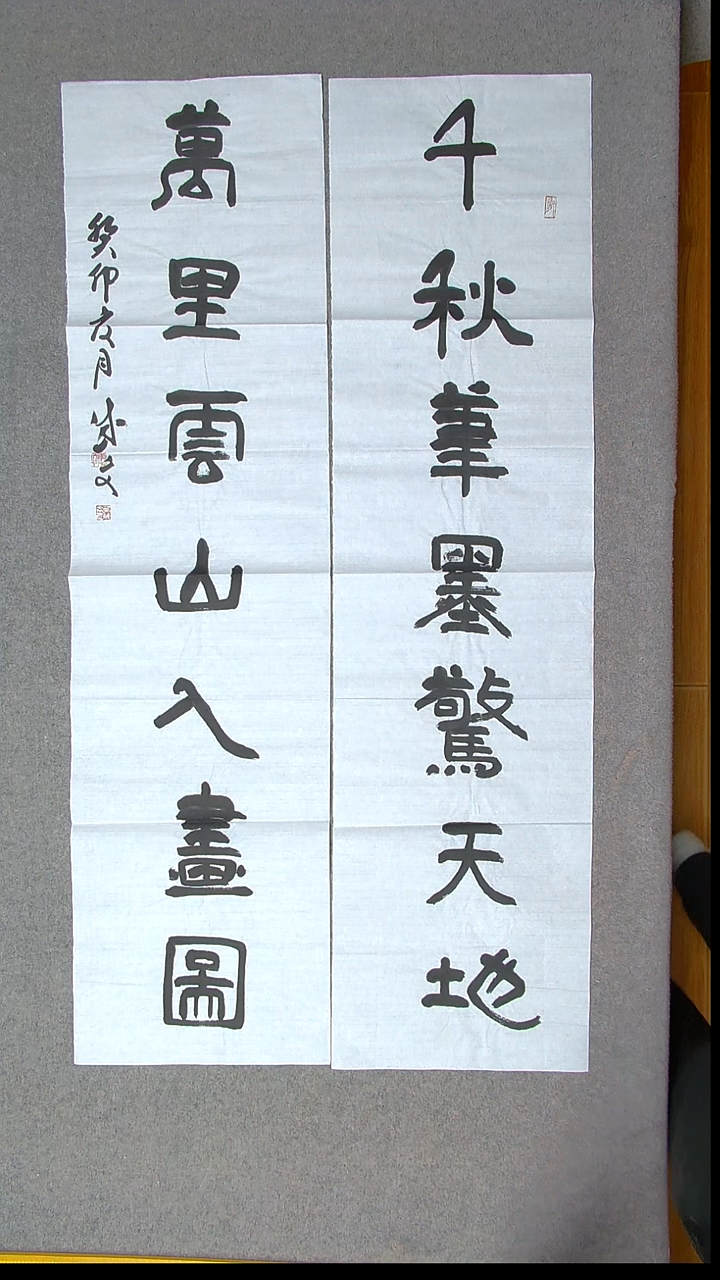 千秋筆墨驚天地
萬里雲山入畫圖
癸卯六月